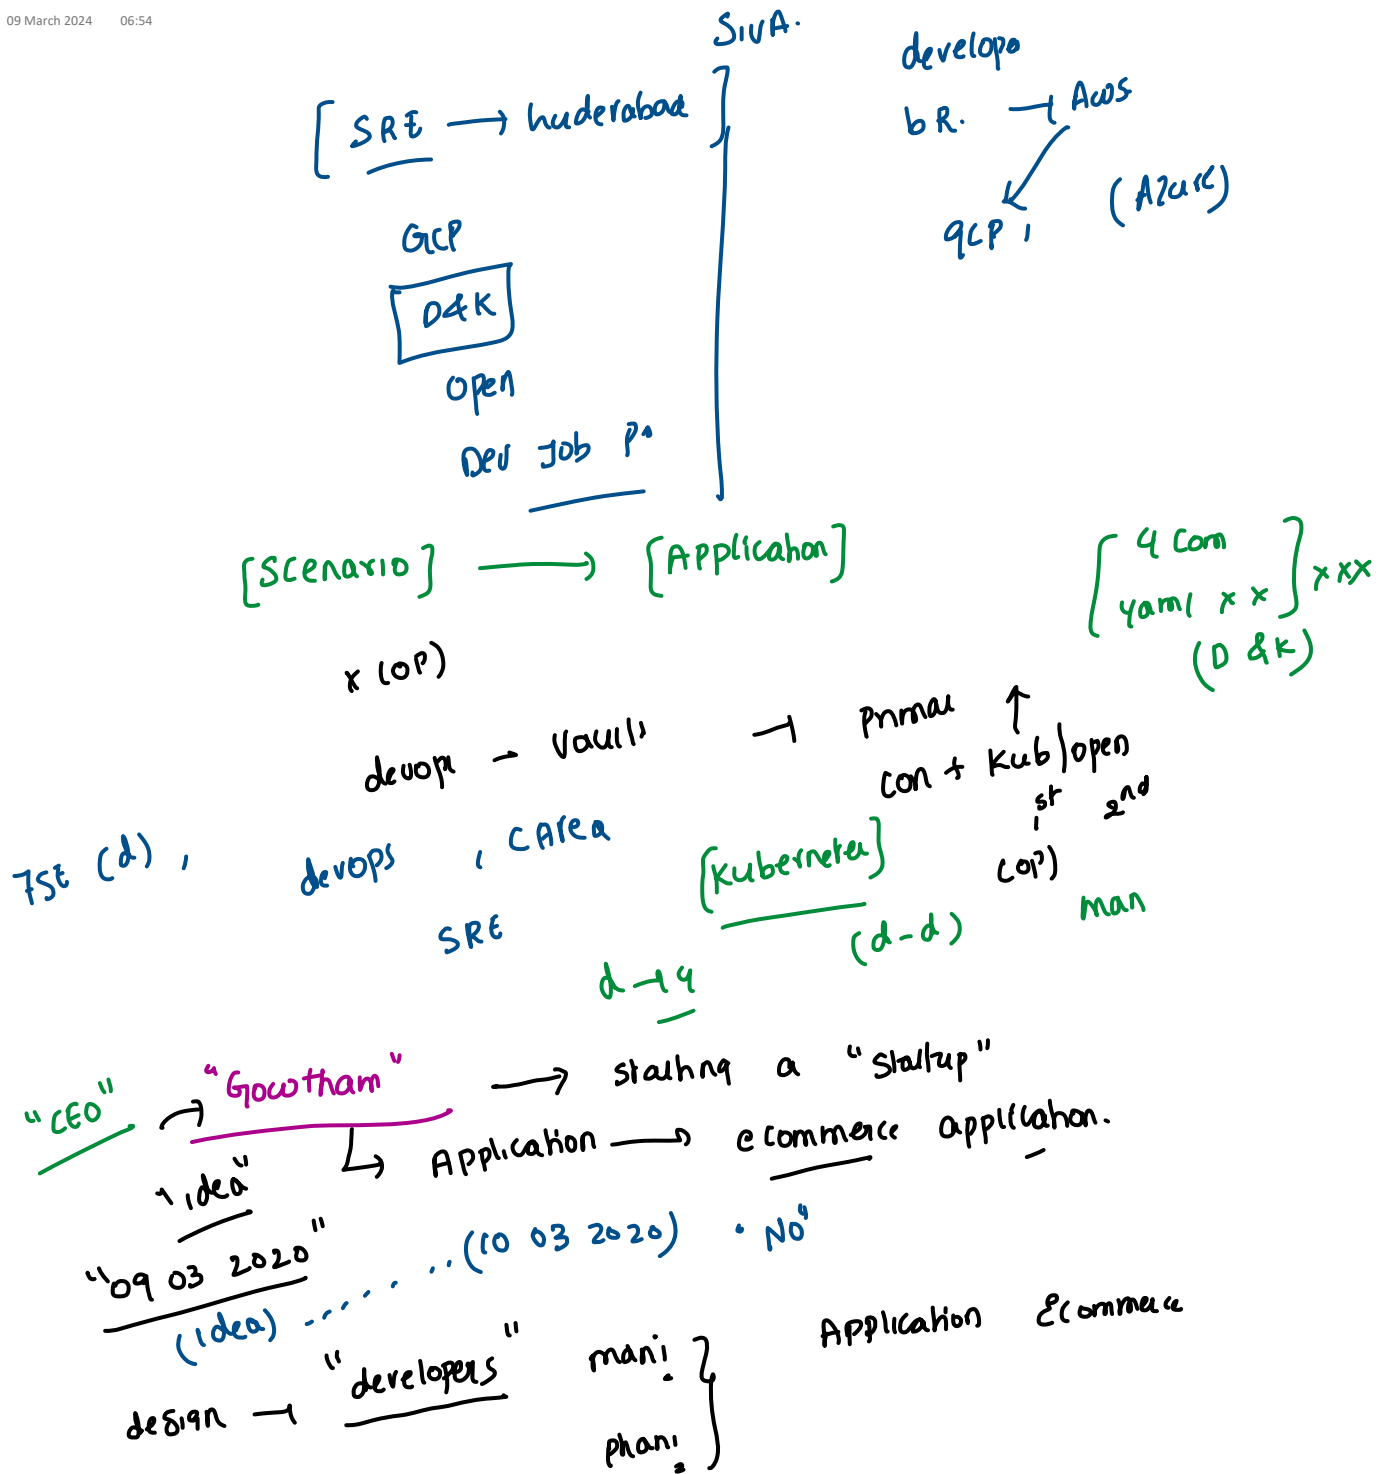 09 March 2024 06:54
SIVA.
[ SRE → huderabad ]
developo
bR. → Aws
GCP, (Azure)
GCP
D&K
open
Dev Job P.
[Scenario] → [Application]
[ 4 Com
yaml x x ] xxx
(D &K)
x (OP)
devops - Vault → Primar ↑
con + Kub/open
1st 2nd
(OP)
(d), devops, CArea
SRE
[Kubernetes]
(d-d) man
d → 4
"CEO" → "Gowtham" → starting a "Startup"
↳ Application → ecommerce application.
"idea"
"09 03 2020"
(idea) ........ (10 03 2020) . NO"
Application Ecommerce
design → "developers" mani
phani